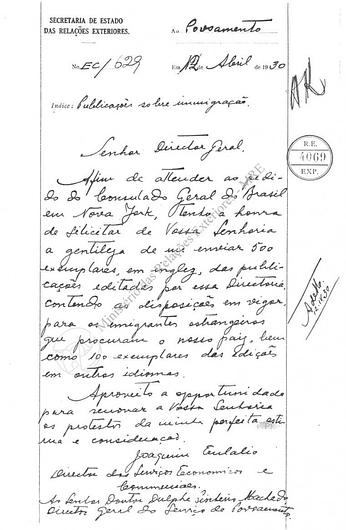 SECRETARIA DE ESTADO
DAS RELAÇÕES EXTERIORES.
Ao Povoamento
No. EC/629
Em 12 de Abril de 1930
Indice: Publicações sobre immigração.
Senhor Director Geral.
R.E.
4069
EXP.
Afim de attender ao pedi-
do do Consulado Geral do Brasil
em Nova York, tenho a honra
de solicitar de Vossa Senhoria
a gentileza de me enviar 500
exemplares, em inglez, das publi-
cações editadas por essa Directoria,
contendo as disposições em vigor,
para os emigrantes estrangeiros
que procuram o nosso paiz, bem
como 100 exemplares das edições
em outros idiomas.
Aproveito a opportunidade
para renovar a Vossa Senhoria
os protestos da minha perfeita esti-
ma e consideração.
Joaquim Eulalio
Director dos Serviços Economicos e
Commerciaes.
Ao Senhor Doutor Dulphe Pinheiro Machado
Director Geral do Serviço de Povoamento.
Ministério das Relações Exteriores - MRE